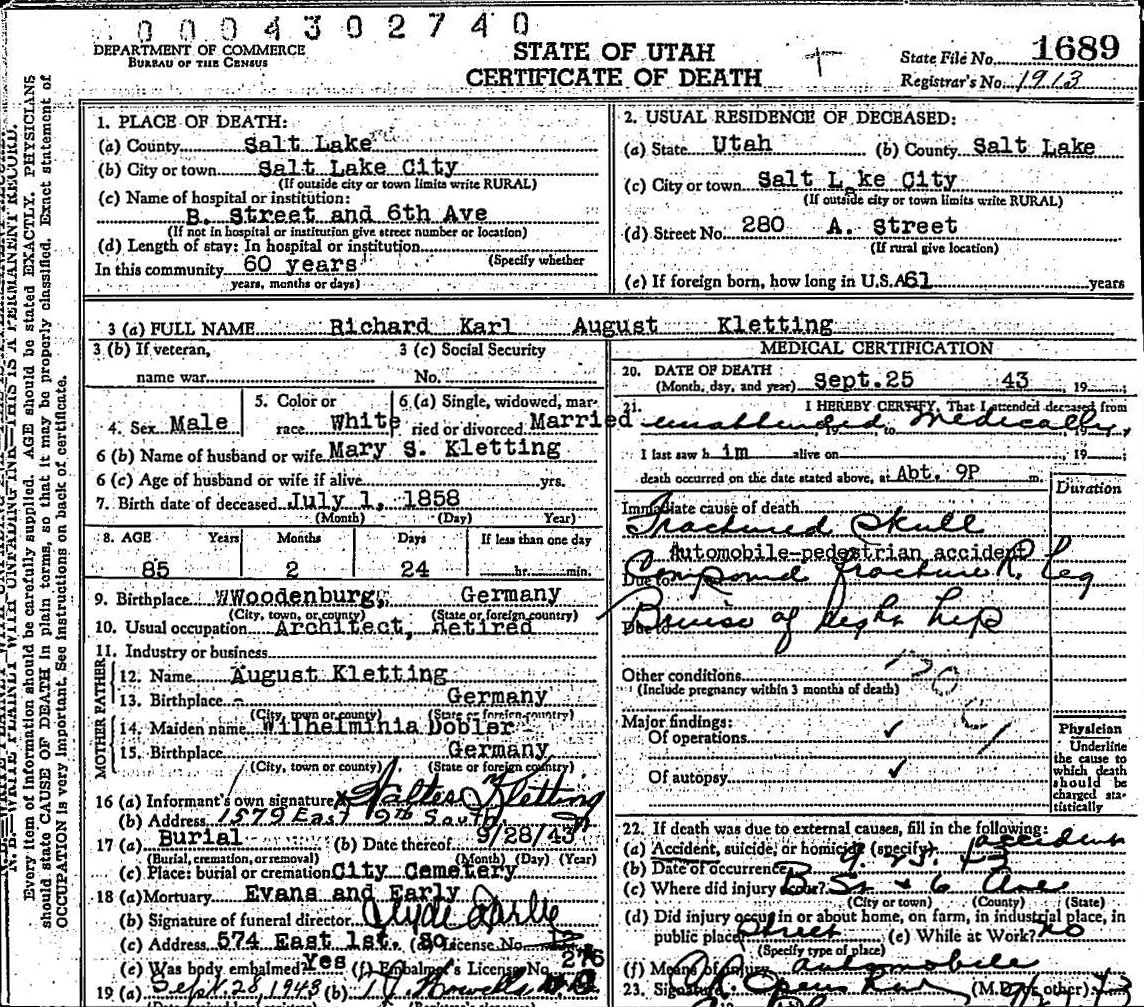 0 0 0 4 3 0 2 7 4 0
DEPARTMENT OF COMMERCE
BUREAU OF THE CENSUS
STATE OF UTAH
CERTIFICATE OF DEATH
State File No. 1689
Registrar's No. 1913
Every item of information should be carefully supplied. AGE should be stated EXACTLY. PHYSICIANS
should state CAUSE OF DEATH in plain terms, so that it may be properly classified. Exact statement of
OCCUPATION is very important. See instructions on back of certificate.
1. PLACE OF DEATH:
(a) County Salt Lake
(b) City or town Salt Lake City
(If outside city or town limits write RURAL)
(c) Name of hospital or institution:
B. Street and 6th Ave
(If not in hospital or institution give street number or location)
(d) Length of stay: In hospital or institution
(Specify whether
In this community 60 years
years, months or days)
2. USUAL RESIDENCE OF DECEASED:
(a) State Utah (b) County Salt Lake
(c) City or town Salt Lake City
(If outside city or town limits write RURAL)
(d) Street No. 280 A. Street
(If rural give location)
(e) If foreign born, how long in U.S.A. 61 years
3 (a) FULL NAME Richard Karl August Kletting
3 (b) If veteran, 3 (c) Social Security
name war No.
4. Sex Male 5. Color or race White 6 (a) Single, widowed, married or divorced Married
6 (b) Name of husband or wife Mary S. Kletting
6 (c) Age of husband or wife if alive yrs.
7. Birth date of deceased July 1, 1858
(Month) (Day) Year)
8. AGE Years Months Days If less than one day
85 2 24 hr. min.
9. Birthplace WWoodenburg, Germany
(City, town, or county) (State or foreign country)
10. Usual occupation Architect, Retired
11. Industry or business
FATHER
12. Name August Kletting
13. Birthplace Germany
(City, town or county) (State or foreign country)
MOTHER
14. Maiden name Wilhelminia Dobler
15. Birthplace Germany
(City, town or county) (State or foreign country)
16 (a) Informant's own signature x Walter Kletting
(b) Address 1579 East 9th South
17 (a) Burial (b) Date thereof 9/28/43
(Burial, cremation, or removal) (Month) (Day) (Year)
(c) Place: burial or cremation City Cemetery
18 (a) Mortuary Evans and Early
(b) Signature of funeral director Clyde Early
(c) Address 574 East 1st. So License No. 12
(e) Was body embalmed? Yes (f) Embalmer's License No. 276
19 (a) Sept 28, 1943 (b)
MEDICAL CERTIFICATION
20. DATE OF DEATH
(Month, day, and year) Sept. 25 43 19
21. I HEREBY CERTIFY, That I attended deceased from
unattended medically 19 to 19
I last saw h im alive on 19
death occurred on the date stated above, at Abt. 9P m.
Duration
Immediate cause of death
Fractured Skull
Automobile-pedestrian accident
Due to Compound fracture R. Leg
Due to Bruise of right hip
Other conditions
(Include pregnancy within 3 months of death)
Major findings:
Of operations ✓
Of autopsy ✓
Physician
Underline
the cause to
which death
should be
charged sta-
tistically
22. If death was due to external causes, fill in the following:
(a) Accident, suicide, or homicide (specify) accident
(b) Date of occurrence 9. 25. 43
(c) Where did injury occur? B St & 6 Ave
(City or town) (County) (State)
(d) Did injury occur in or about home, on farm, in industrial place, in
public place? Street (e) While at Work? no
(Specify type of place)
(f) Means of injury automobile
23. Signature (M.D. or other)